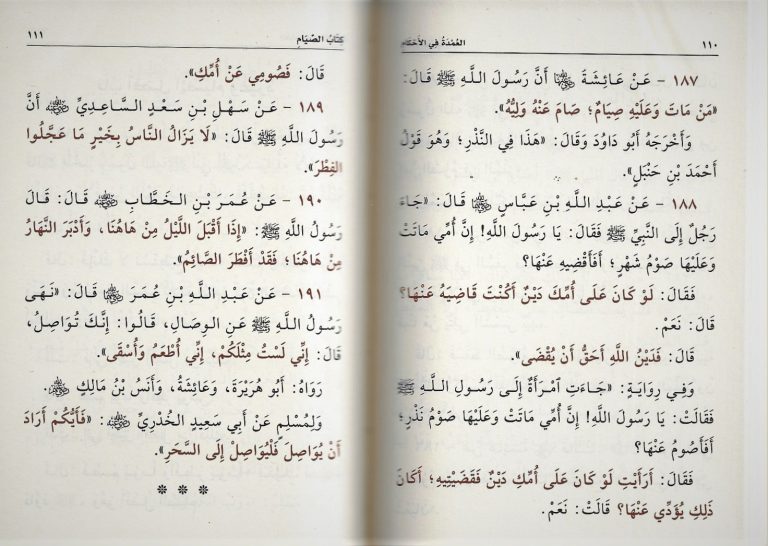 ١١٠
العُمْدَةُ فِي الأَحْكَامِ
١٨٧ - عَنْ عَائِشَةَ رضي الله عنها أَنَّ رَسُولَ اللَّهِ ﷺ قَالَ:
«مَنْ مَاتَ وَعَلَيْهِ صِيَامٌ؛ صَامَ عَنْهُ وَلِيُّهُ».
وَأَخْرَجَهُ أَبُو دَاوُدَ وَقَالَ: «هَذَا فِي النَّذْرِ؛ وَهُوَ قَوْلُ
أَحْمَدَ بْنِ حَنْبَلٍ».
١٨٨ - عَنْ عَبْدِ اللَّهِ بْنِ عَبَّاسٍ رضي الله عنهما قَالَ: «جَاءَ
رَجُلٌ إِلَى النَّبِيِّ ﷺ فَقَالَ: يَا رَسُولَ اللَّهِ! إِنَّ أُمِّي مَاتَتْ
وَعَلَيْهَا صَوْمُ شَهْرٍ؛ أَفَأَقْضِيهِ عَنْهَا؟
فَقَالَ: لَوْ كَانَ عَلَى أُمِّكَ دَيْنٌ أَكُنْتَ قَاضِيَهُ عَنْهَا؟
قَالَ: نَعَمْ.
قَالَ: فَدَيْنُ اللَّهِ أَحَقُّ أَنْ يُقْضَى».
وَفِي رِوَايَةٍ: «جَاءَتِ امْرَأَةٌ إِلَى رَسُولِ اللَّهِ ﷺ
فَقَالَتْ: يَا رَسُولَ اللَّهِ! إِنَّ أُمِّي مَاتَتْ وَعَلَيْهَا صَوْمُ نَذْرٍ؛
أَفَأَصُومُ عَنْهَا؟
فَقَالَ: أَرَأَيْتِ لَوْ كَانَ عَلَى أُمِّكِ دَيْنٌ فَقَضَيْتِيهِ؛ أَكَانَ
ذَلِكِ يُؤَدِّي عَنْهَا؟ قَالَتْ: نَعَمْ.
كِتَابُ الصِّيَامِ
١١١
قَالَ: فَصُومِي عَنْ أُمِّكِ».
١٨٩ - عَنْ سَهْلِ بْنِ سَعْدٍ السَّاعِدِيِّ رضي الله عنه أَنَّ
رَسُولَ اللَّهِ ﷺ قَالَ: «لَا يَزَالُ النَّاسُ بِخَيْرٍ مَا عَجَّلُوا
الفِطْرَ».
١٩٠ - عَنْ عُمَرَ بْنِ الخَطَّابِ رضي الله عنه قَالَ: قَالَ
رَسُولُ اللَّهِ ﷺ: «إِذَا أَقْبَلَ اللَّيْلُ مِنْ هَاهُنَا، وَأَدْبَرَ النَّهَارُ
مِنْ هَاهُنَا؛ فَقَدْ أَفْطَرَ الصَّائِمُ».
١٩١ - عَنْ عَبْدِ اللَّهِ بْنِ عُمَرَ رضي الله عنهما قَالَ: «نَهَى
رَسُولُ اللَّهِ ﷺ عَنِ الوِصَالِ، قَالُوا: إِنَّكَ تُوَاصِلُ،
قَالَ: إِنِّي لَسْتُ مِثْلَكُمْ، إِنِّي أُطْعَمُ وَأُسْقَى».
رَوَاهُ: أَبُو هُرَيْرَةَ، وَعَائِشَةُ، وَأَنَسُ بْنُ مَالِكٍ رضي الله عنهم.
وَلِمُسْلِمٍ عَنْ أَبِي سَعِيدٍ الخُدْرِيِّ رضي الله عنه: «فَأَيُّكُمْ أَرَادَ
أَنْ يُوَاصِلَ فَلْيُوَاصِلْ إِلَى السَّحَرِ».
* * *